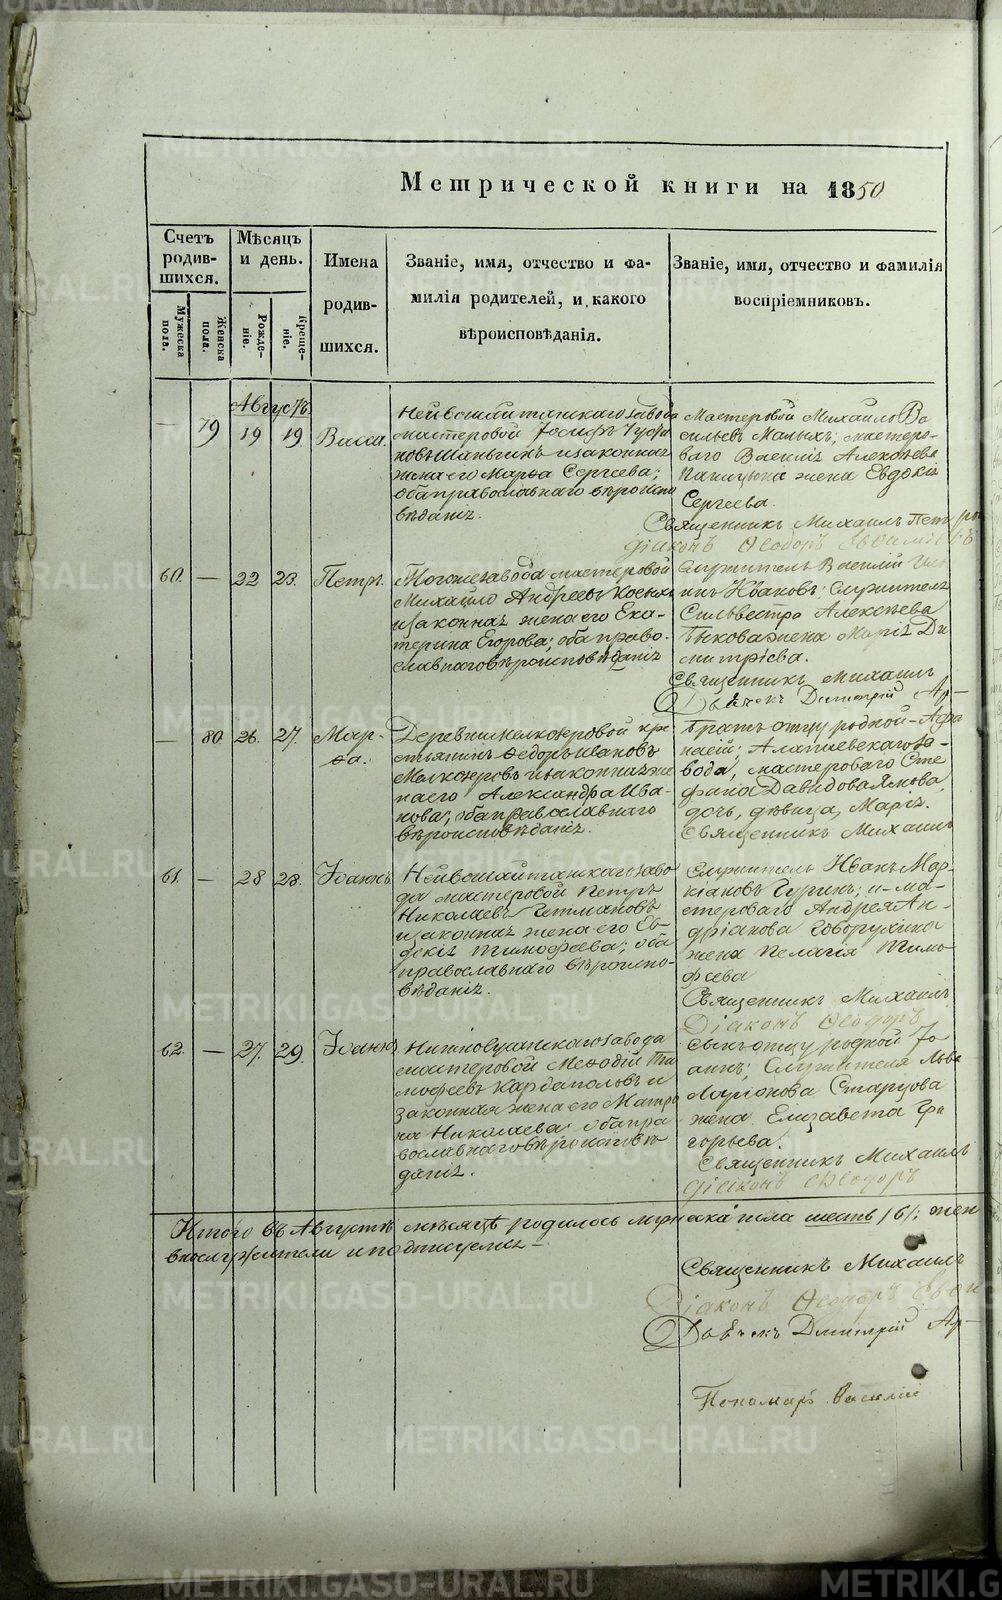 Метрической книги на 1850
Счетъ родив-шихся.
Мѣсяцъ и день.
Имена родив-шихся.
Званіе, имя, отчество и фа-
милія родителей, и какого
вѣроисповѣданія.
Званіе, имя, отчество и фамилія
воспріемниковъ.
Мужеска пола.
Женска пола.
Рожде-ніе.
Креще-ніе.
Августъ
— 79 19 19 Васса.
Нейвошайтанскаго завода
мастеровой Іосифъ
и законная
жена его Марѳа Сергеева;
оба православнаго вѣроиспо
вѣданія.
Мастеровой Михайло Ва
сильевъ Малыхъ; мастеро-
ваго Василія Алексѣева
жена Евдокія
Сергеева.
Священникъ Михаилъ Петъ
Діаконъ Ѳеодоръ
60. — 22 23. Петръ.
Тогоже завода мастеровой
Михайло Андреевъ
и законная жена его Ека-
терина Егорова; оба право-
славнаго вѣроисповѣданія
Служитель Василій
Ивановъ; служителя
Сильвестра Алексѣева
Быкова жена Марія Ди
митріева.
Священникъ Михаилъ
Дьячокъ Димитрій Ар-
— 80. 26. 27. Мар-
ѳа.
Деревни Мелкозеровой кре
стьянинъ Ѳедоръ Ивановъ
Мелкозеровъ и законная же
на его Александра Ива-
нова; оба православнаго
вѣроисповѣданія.
Братъ отцу родной Аѳа
насій; Алапаевскаго за-
вода, мастероваго Сте
фана Давидова
дочь, дѣвица, Марія.
Священникъ Михаилъ
61. — 28 28. Іоаннъ.
Нейвошайтанскаго заво
да мастеровой Петръ
Николаевъ
и законная жена его Ев-
докія Тимофеева; оба
православнаго вѣроиспо-
вѣданія.
Служитель Иванъ Мар-
кіановъ и ма-
стероваго Андрея Ан-
дріанова Говорухина
жена Пелагія Тимо-
феева
Священникъ Михаилъ
Діаконъ Ѳеодоръ
62. — 27. 29. Іоаннъ.
завода
мастеровой Меѳодій Ти
мофеевъ Кардаполовъ и
законная жена его Матро
на Николаева; оба пра
вославнаго вѣроисповѣ
данія.
Сынъ отцу родной Іо
аннъ; служителя Льва
Ларіонова Старцова
жена Елизавета Гри
горьева.
Священникъ Михаилъ
Діаконъ Ѳеодоръ
Итого въ Августѣ мѣсяцѣ родилось мужеска пола шесть /6/; жен
и подписуемся
Священникъ Михаилъ
Діаконъ Ѳеодоръ
Дьячокъ Димитрій Ар-
Пономарь Василій
METRIKI.GASO-URAL.RU